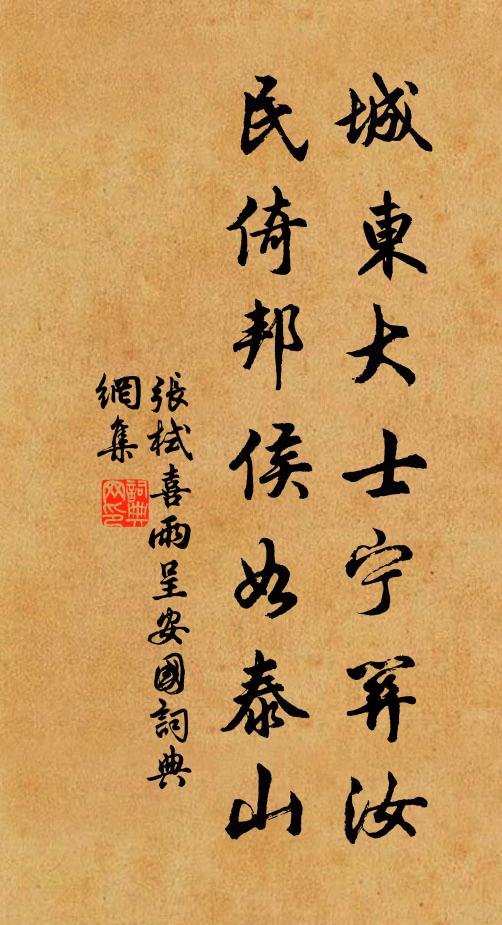 城東大士宁汝
民倚邦侯如泰山
張栻喜雨呈安國詞典
網集
詞典
网印